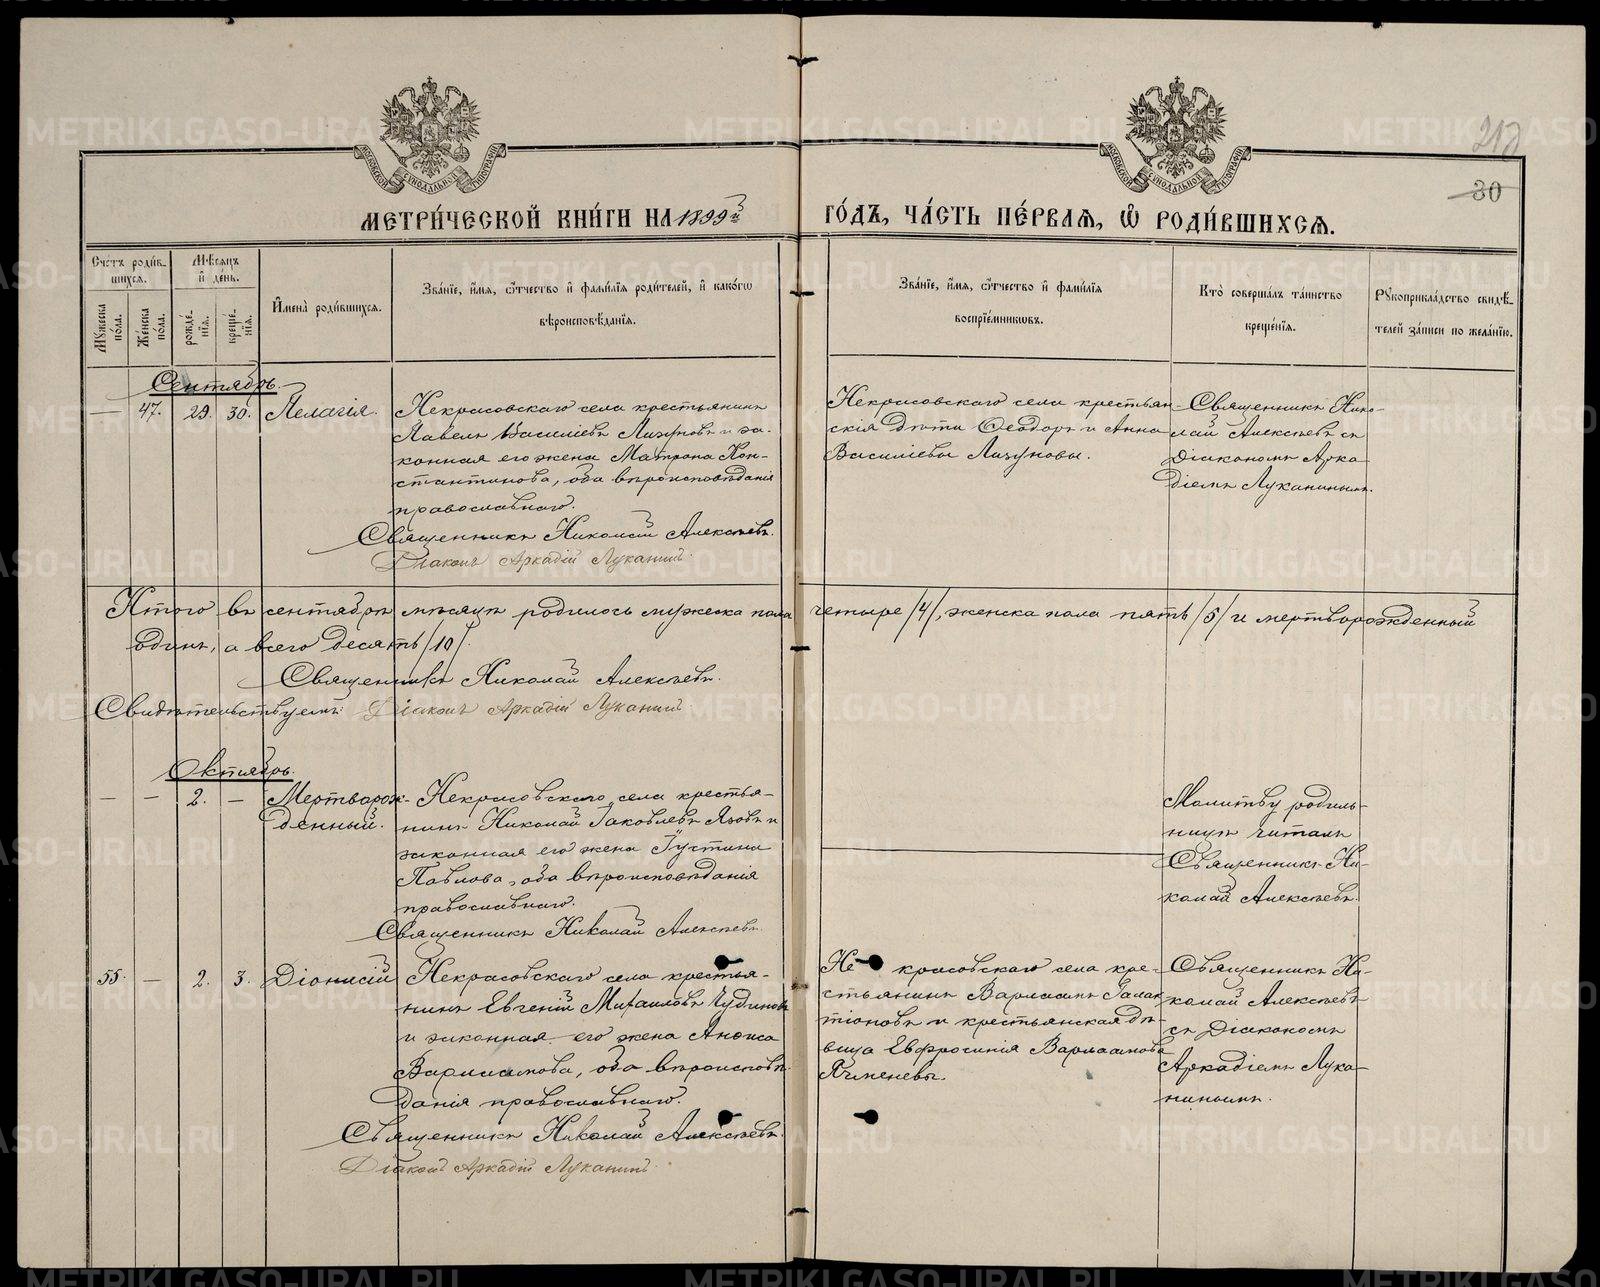 217
30
МОСКОВСКОЙ СѴНОДАЛЬНОЙ ТИПОГРАФІИ
МОСКОВСКОЙ СѴНОДАЛЬНОЙ ТИПОГРАФІИ
МЕТРИ́ЧЕСКОЙ КНИ́ГИ НА 1899й ГО́ДЪ, ЧА́СТЬ ПЕ́РВАѦ, Ѡ҆ РОДИ́ВШИХСѦ.
Сче́тъ роди́в-
шихся.
Мѣ́сяцъ
и҆ де́нь.
Мꙋ́жеска
по́ла.
Же́нска
по́ла.
рожде́-
нїя.
креще́-
нїя.
И҆мена̀ роди́вшихся.
Зва́нїе, и҆́мя, ѻ҆́тчество и҆ фамилїя роди́телей, и҆ како́гѡ
вѣроисповѣ́данїя.
Зва́нїе, и҆́мя, ѻ҆́тчество и҆ фами́лїя
воспрїе́мникѡвъ.
Кто̀ соверша́лъ та́инство
креще́нїя.
Рꙋкоприкла́дство свидѣ́-
телей за́писи по жела́нїю.
Сентябрь.
— 47. 29. 30. Пелагія.
Некрасовскаго села крестьянинъ
Павелъ Василіевъ Лизуновъ и за-
конная его жена Матрона Кон-
стантинова, оба вѣроисповѣданія
православнаго.
Священникъ Николай Алексѣевъ.
Діаконъ Аркадій Луканинъ.
Некрасовскаго села крестьян-
скія дѣти Ѳеодоръ и Анна
Василіевы Лизуновы.
Священникъ Нико-
лай Алексѣевъ съ
Діакономъ Арка
діемъ Луканинымъ.
Итого въ сентябрѣ мѣсяцѣ родилось мужеска пола четыре /4/, женска пола пять /5/ и мертворожденный
одинъ, а всего десять /10/.
Священникъ Николай Алексѣевъ.
Свидѣтельствуемъ: Діаконъ Аркадій Луканинъ.
Октябрь.
— — 2. — Мертворож-
денный.
Некрасовскаго села крестья-
нинъ Николай Іаковлевъ Язовъ и
законная его жена Іустина
Павлова, оба вѣроисповѣданія
православнаго.
Священникъ Николай Алексѣевъ.
Молитву родиль-
ницѣ читалъ
Священникъ Ни-
колай Алексѣевъ.
55. — 2. 3. Діонисій
Некрасовскаго села крестья-
нинъ Евгеній Михаиловъ Чудиновъ
и законная его жена Анѳиса
Варлаамова, оба вѣроисповѣ-
данія православнаго.
Священникъ Николай Алексѣевъ.
Діаконъ Аркадій Луканинъ.
Некрасовскаго села кре-
стьянинъ Варлаамъ Галак
тіоновъ и крестьянская дѣ-
вица Евфросинія Варлаамова
Священникъ Ни-
колай Алексѣевъ
съ Діакономъ
Аркадіемъ Лука-
нинымъ.
METRIKI.GASO-URAL.RU